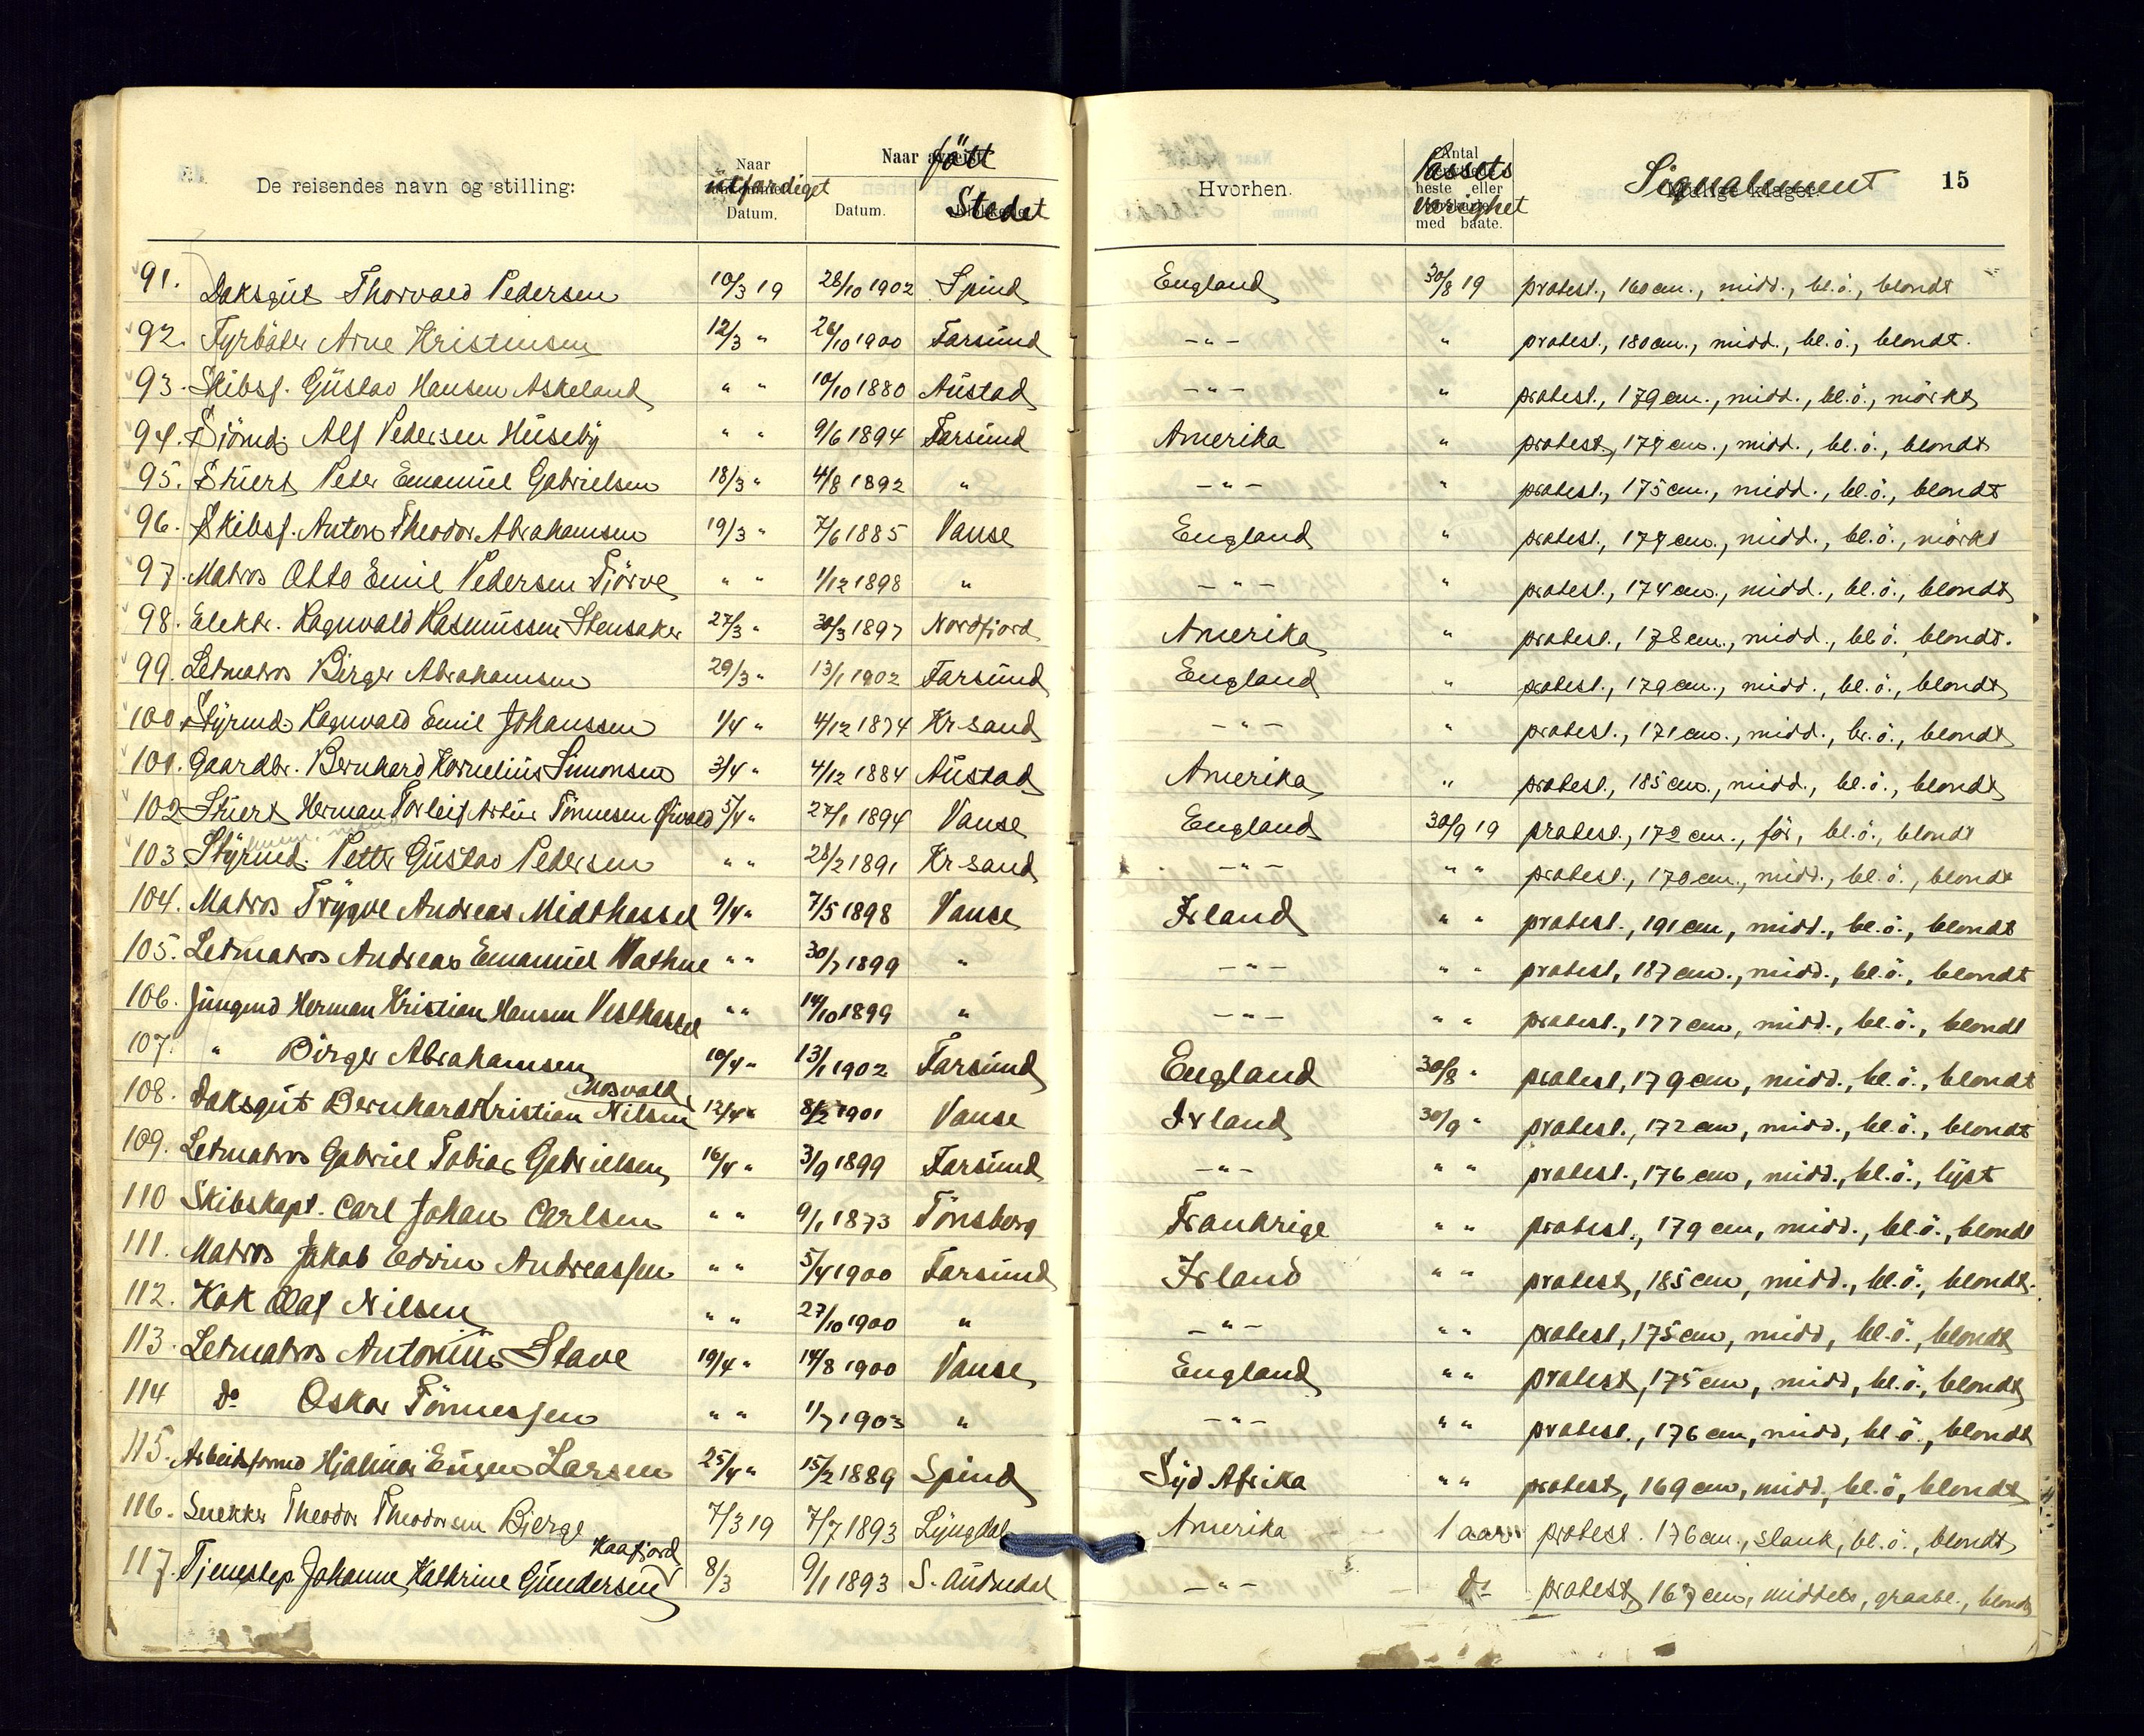 De reisendes navn og stilling: Naar utfærdiget Datum. Naar født Datum. Stedet Hvorhen. Antal heste eller med baate. Passets varighet Signalement 15
91. Daksgut Thorvald Pedersen 10/3 19 28/10 1902 Spind England 30/8 19 protest., 160 cm., midd., bl.ö., blondt
92. Fyrböter Arne Kristensen 12/3 " 26/10 1900 Farsund -"- " protest., 180 cm., midd., bl.ö., blondt.
93. Skibsf. Gustav Hansen Askeland " " 10/10 1880 Austad -"- " protest., 179 cm., midd., bl.ö., mörkt
94. Sjömd. Alf Pedersen Huseby " " 9/6 1894 Farsund Amerika " protest., 179 cm., midd., bl.ö., blondt
95. Stuert Peter Emanuel Gabrielsen 18/3 " 4/8 1892 " -"- " protest., 175 cm., midd., bl.ö., blondt
96. Skibsf. Anton Theodor Abrahamsen 19/3 " 7/6 1885 Vanse England " protest., 179 cm., midd., bl.ö., mörkt
97. Matros Otto Emil Pedersen Tjörve " " 1/12 1898 " -"- " protest., 174 cm., midd., bl.ö., blondt
98. Elektr. Ragnvald Rasmussen Stensaker 27/3 " 30/3 1897 Nordfjord Amerika " protest., 178 cm., midd., bl.ö. blondt.
99. Letmatros Birger Abrahamsen 29/3 " 13/1 1902 Farsund England " protest., 179 cm., midd., bl.ö., blondt
100 Styrmd. Ragnvald Emil Johanssen 1/4 " 4/12 1874 Kr-sand -"- " protest., 171 cm., midd., br.ö., blondt
101. Gaardbr. Bernhard Kornelius Simonsen 3/4 " 4/12 1884 Austad Amerika " protest., 185 cm., midd., bl.ö., blondt
102 Stuert Herman Torleif Artur Tönnesen 5/4 " 27/1 1894 Vanse England 30/9 19 protest., 172 cm., för, bl.ö., blondt
103. Styrmd. Petter Gustav Pedersen " " 28/2 1891 Kr-sand -"- " " protest., 170 cm., midd., bl.ö., blondt
104. Matros Trygve Andreas Midthassel 9/4 " 7/5 1898 Vanse Irland " " protest., 191 cm, midd., bl.ö., blondt
105. Letmatros Andreas Emanuel Vathne " " 30/7 1899 " -"- " " protest, 187 cm., midd., bl.ö., blondt
106. Jungmd Herman Kristian Hansen Vesthassel " " 14/10 1899 " -"- " " protest., 177 cm, midd., bl.ö., blondt
107. " Birger Abrahamsen 10/4 " 13/1 1902 Farsund England 30/8 " protest, 179 cm, midd., bl.ö., blondt
108. Daksgut Bernhard Kristian Nilsen Mosvold 12/4 " 8/2 1901 Vanse Irland 30/9 " protest., 172 cm, midd., bl.ö., blondt
109. Letmatros Gabriel Tobias Gabrielsen 16/4 " 3/9 1899 Farsund -"- " " protest., 176 cm, midd., bl.ö., lyst
110 Skibskapt. Carl Johan Carlsen " " 9/1 1873 Tönsberg Frankrige " " protest., 179 cm, midd., bl.ö., blondt
111. Matros Jakob Edvin Andreassen " " 5/4 1900 Farsund Irland " " protest, 185 cm, midd., bl.ö., blondt.
112. Kok Olaf Nilsen " " 27/10 1900 " -"- " " protest, 175 cm, midd, bl.ö., blondt
113. Letmatros Antonius Stave 19/4 " 14/8 1900 Vanse England " " protest, 175 cm, midd, bl.ö., blondt
114 do Oskar Tönnessen " " 1/7 1903 " -"- " " protest., 176 cm, midd, bl.ö., blondt
115. Arbeidsformd Hjalmar Eugen Larsen 25/4 " 15/2 1889 Spind Syd Afrika " " protest, 169 cm, midd., bl.ö, blondt
116. Snekker Theodor Theodorsen Bjerge 7/3 19 7/7 1893 Lyngdal Amerika 1 aar protest. 176 cm., slank, bl.ö., blondt
117. Tjenestep Johanne Kathrine Gundersen Kaafjord 8/3 9/1 1893 S. Audnedal -"- do protest, 167 cm, middels, graabl., blondt